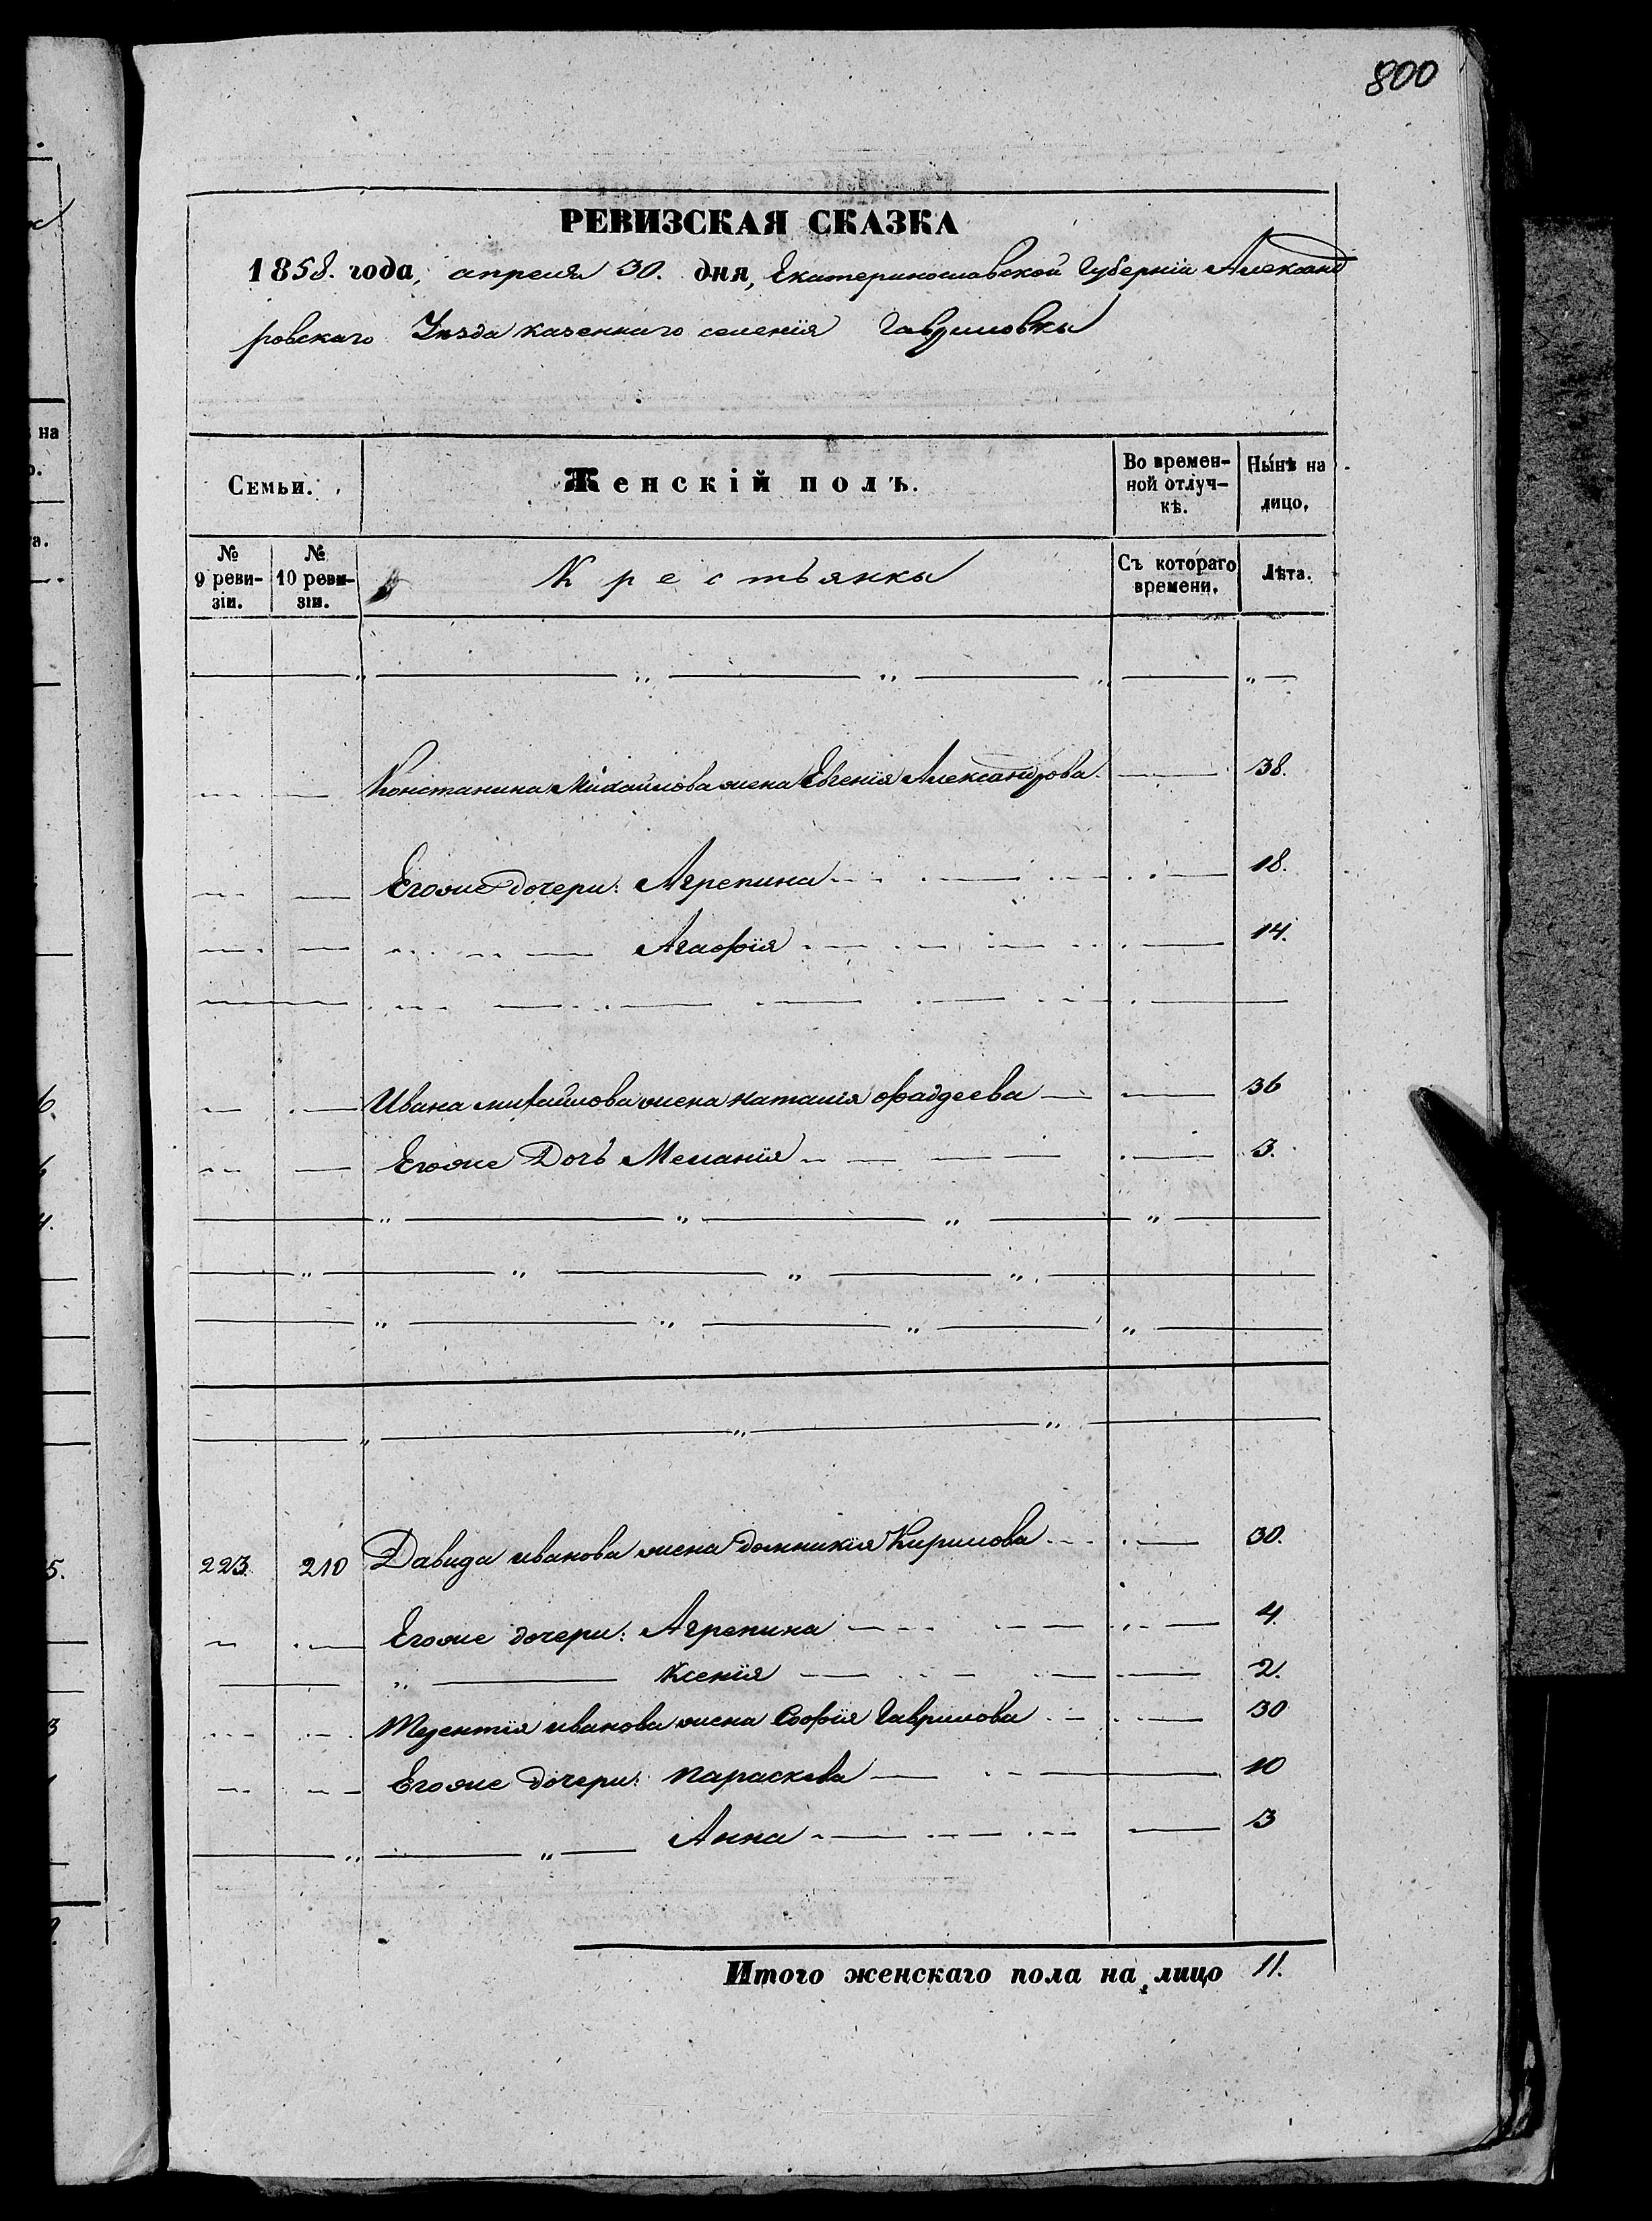 800
РЕВИЗСКАЯ СКАЗКА
1858. года, апреля 30. дня, Екатеринославской Губерніи Александ
ровскаго Уѣзда казеннаго селенія Гавриловки
Семьи.
Женскій полъ.
Во времен-
ной отлуч-
кѣ.
Нынѣ на
лицо.
№
9 реви-
зіи.
№
10 реви-
зіи.
Крестьянки
Съ котораго
времени.
Лѣта.
Констанина Михайлова жена Евгенія Александрова 38.
Егоже дочери: Агрепина 18.
Агафія 14.
Ивана михайлова жена наталія фаддеева 36
Егоже Дочь Меланія 3.
223. 210 Давида иванова жена домникія Кирилова 30.
Егоже дочери: Агрепина 4.
Ксенія 2.
Терентія иванова жена Софія Гаврилова 30
Егоже дочери: параскева 10
Анна 3
Итого женскаго пола на лицо 11.